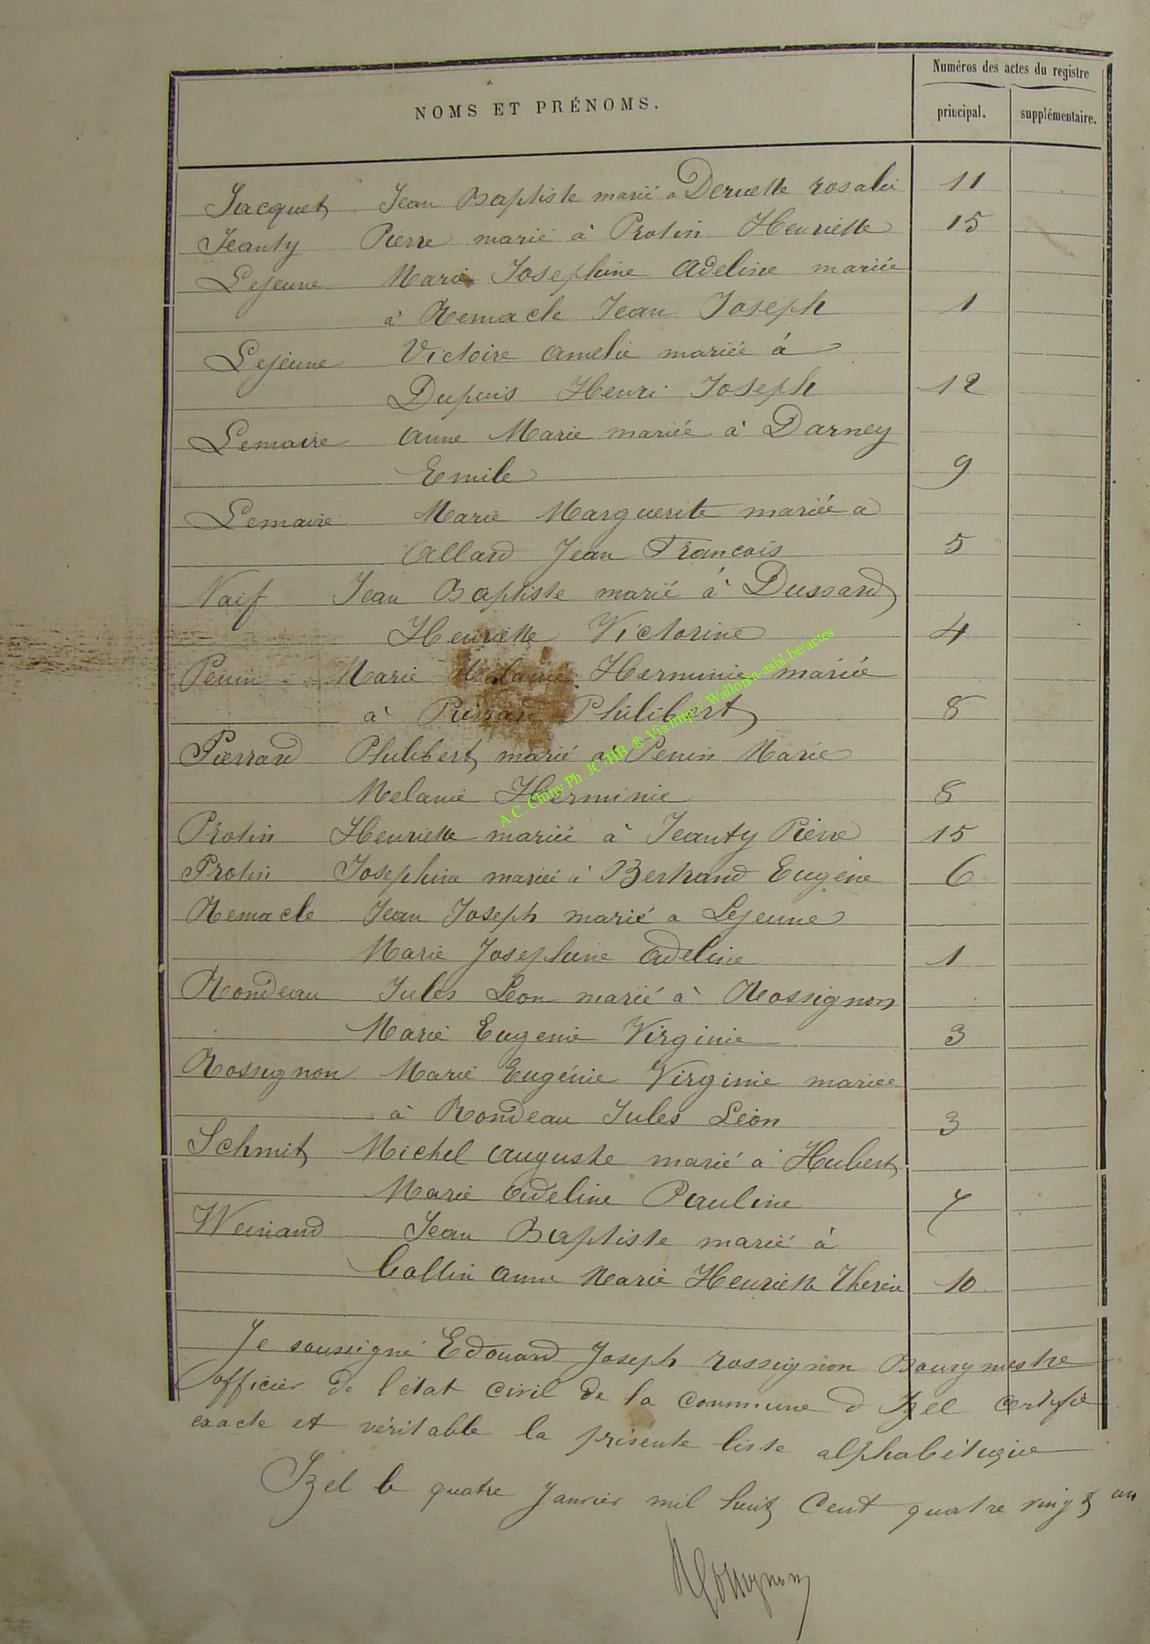 NOMS ET PRÉNOMS.
Numéros des actes du registre
principal.
supplémentaire.
Jacquet Jean Baptiste marié a Deruette rosalie 11
Jeanty Pierre marié à Protin Henriette 15
Lejeune Marie Josephine Adeline mariée
à Remacle Jean Joseph 1
Lejeune Victoire Amelie mariée à
Dupuis Henri Joseph 12
Lemaire Anne Marie mariée à Darney
Emile 9
Lemaire Marie Marguerite mariée a
Allard Jean Francois 5
Naif Jean Baptiste marié à Dussard
Henriette Victorine 4
Penin Marie Melanie Herminie mariée
à Pierrard Philibert 8
Pierrard Philibert marié à Penin Marie
Melanie Herminie 8
Protin Henriette mariée à Jeanty Pierre 15
Protin Josephine mariée à Bertrand Eugène 6
Remacle Jean Joseph marié a Lejeune
Marie Josephine Adeline 1
Rondeau Jules Leon marié à Rossignon
Marie Eugenie Virginie 3
Rossignon Marie Eugénie Virginie mariée
à Rondeau Jules Léon 3
Schmit Michel Auguste marié à Hubert
Marie Adeline Pauline 7
Weinand Jean Baptiste marié à
Collin Anne Marie Henriette Therèse 10
Je soussigné Edouard Joseph rossignon Bourgmestre
officier de l'état civil de la commune d Izel certifie
exacte et véritable la présente liste alphabétique
Izel le quatre Janvier mil huit Cent quatre vingt un
Rossignon
A.C. Chiny Ph. JC/HB ® Via http:// Wallonia-asbl.be/actes